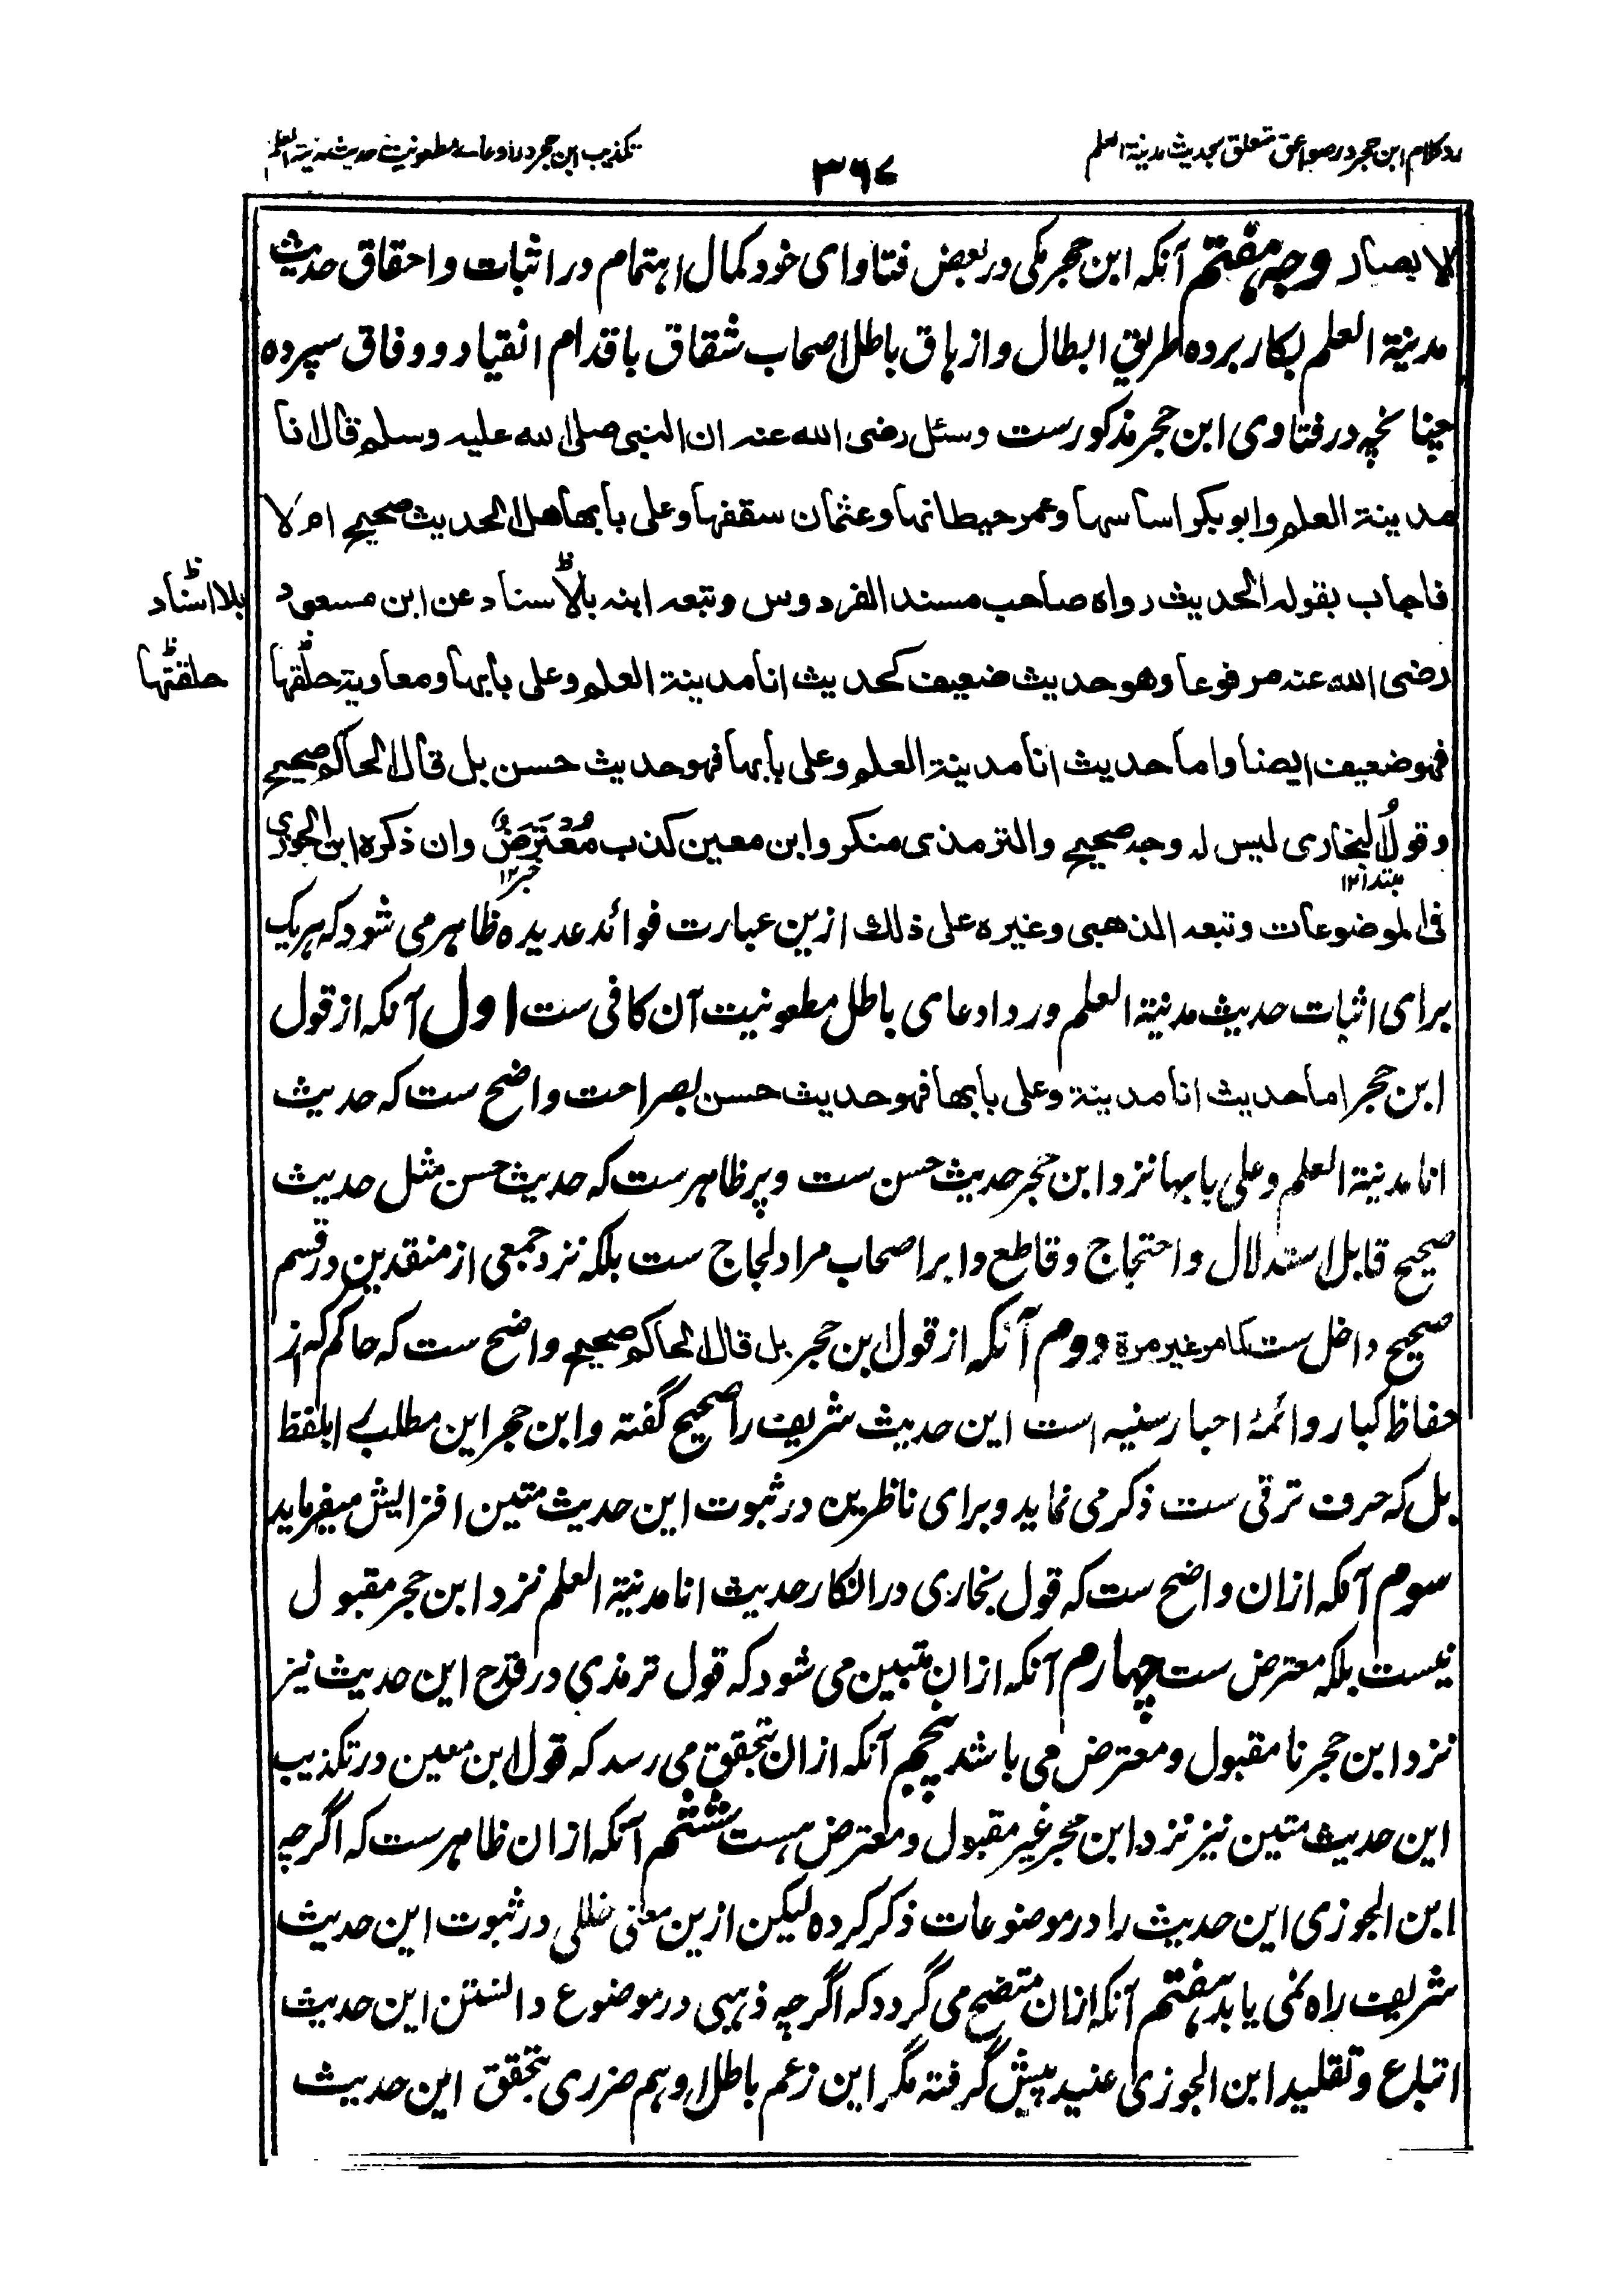 رد کلام ابن حجر در صواعق متعلق بحدیث مدینة العلم
۳۶۷
تکذیب ابن حجر در ادعای مطعونیت حدیث مدینة العلم
لابصار وجه هفتم آنکه ابن حجر مکی در بعض فتاوای خود کمال اهتمام در اثبات و احقاق حدیث
مدینة العلم بکار برده طریق ابطال و ازهاق باطل اصحاب شقاق باقدام انقیاد و وفاق سپرده
چنانچه در فتاوی ابن حجر مذکورست وسئل رضی الله عنه ان النبی صلی الله علیه وسلم قال انا
مدینة العلم وابو بکر اساسها وعمر حیطانها وعثمان سقفها وعلی بابها هل الحدیث صحیح ام لا
فاجاب بقوله الحدیث رواه صاحب مسند الفردوس وتبعه ابنه بالاسناد عن ابن مسعود
بلا اسناد ظ
رضی الله عنه مرفوعا وهو حدیث ضعیف کحدیث انا مدینة العلم وعلی بابها ومعاویة حلقها
حلقتها ظ
فهو ضعیف ایضا واما حدیث انا مدینة العلم وعلی بابها فهو حدیث حسن بل قال الحاکم صحیح
وقولُ البخاری لیس له وجه صحیح والترمذی منکر وابن معین کذب مُعْتَرَضٌ وان ذکره ابن الجوزی
مبتدا ۱۲
خبر ۱۲
فی الموضوعات وتبعه الذهبی وغیره علی ذلك ازین عبارت فوائد عدیده ظاهر می شود که هریک
برای اثبات حدیث مدینة العلم ورد ادعای باطل مطعونیت آن کافی ست اول آنکه از قول
ابن حجر اما حدیث انا مدینة وعلی بابها فهو حدیث حسن بصراحت واضح ست که حدیث
انا مدینة العلم وعلی بابها نزد ابن حجر حدیث حسن ست و پر ظاهرست که حدیث حسن مثل حدیث
صحیح قابل استدلال و احتجاج و قاطع دابر اصحاب مراد لجاج ست بلکه نزد جمعی از منقدین در قسم
صحیح داخل ست کما مر غیر مرة دوم آنکه از قول ابن حجر بل قال الحاکم صحیح واضح ست که حاکم که از
حفاظ کبار وائمۀ احبار سنیه است این حدیث شریف را صحیح گفته و ابن حجر این مطلب را بلفظ
بل که حرف ترقی ست ذکر می نماید و برای ناظرین در ثبوت این حدیث متین افزایش میفرماید
سوم آنکه ازان واضح ست که قول بخاری در انکار حدیث انا مدینة العلم نزد ابن حجر مقبول
نیست بلکه معترض ست چهارم آنکه ازان متبین می شود که قول ترمذی در قدح این حدیث نیز
نزد ابن حجر نا مقبول و معترض می باشد پنجم آنکه ازان بتحقق می رسد که قول ابن معین در تکذیب
این حدیث متین نیز نزد ابن حجر غیر مقبول و معترض هست ششم آنکه ازان ظاهرست که اگرچه
ابن الجوزی این حدیث را در موضوعات ذکر کرده لیکن ازین معنی خللی در ثبوت این حدیث
شریف راه نمی یابد هفتم آنکه ازان متضح می گردد که اگرچه ذهبی در موضوع دانستن این حدیث
اتباع و تقلید ابن الجوزی عنید پیش گرفته مگر این زعم باطل او هم ضرری بتحقق این حدیث